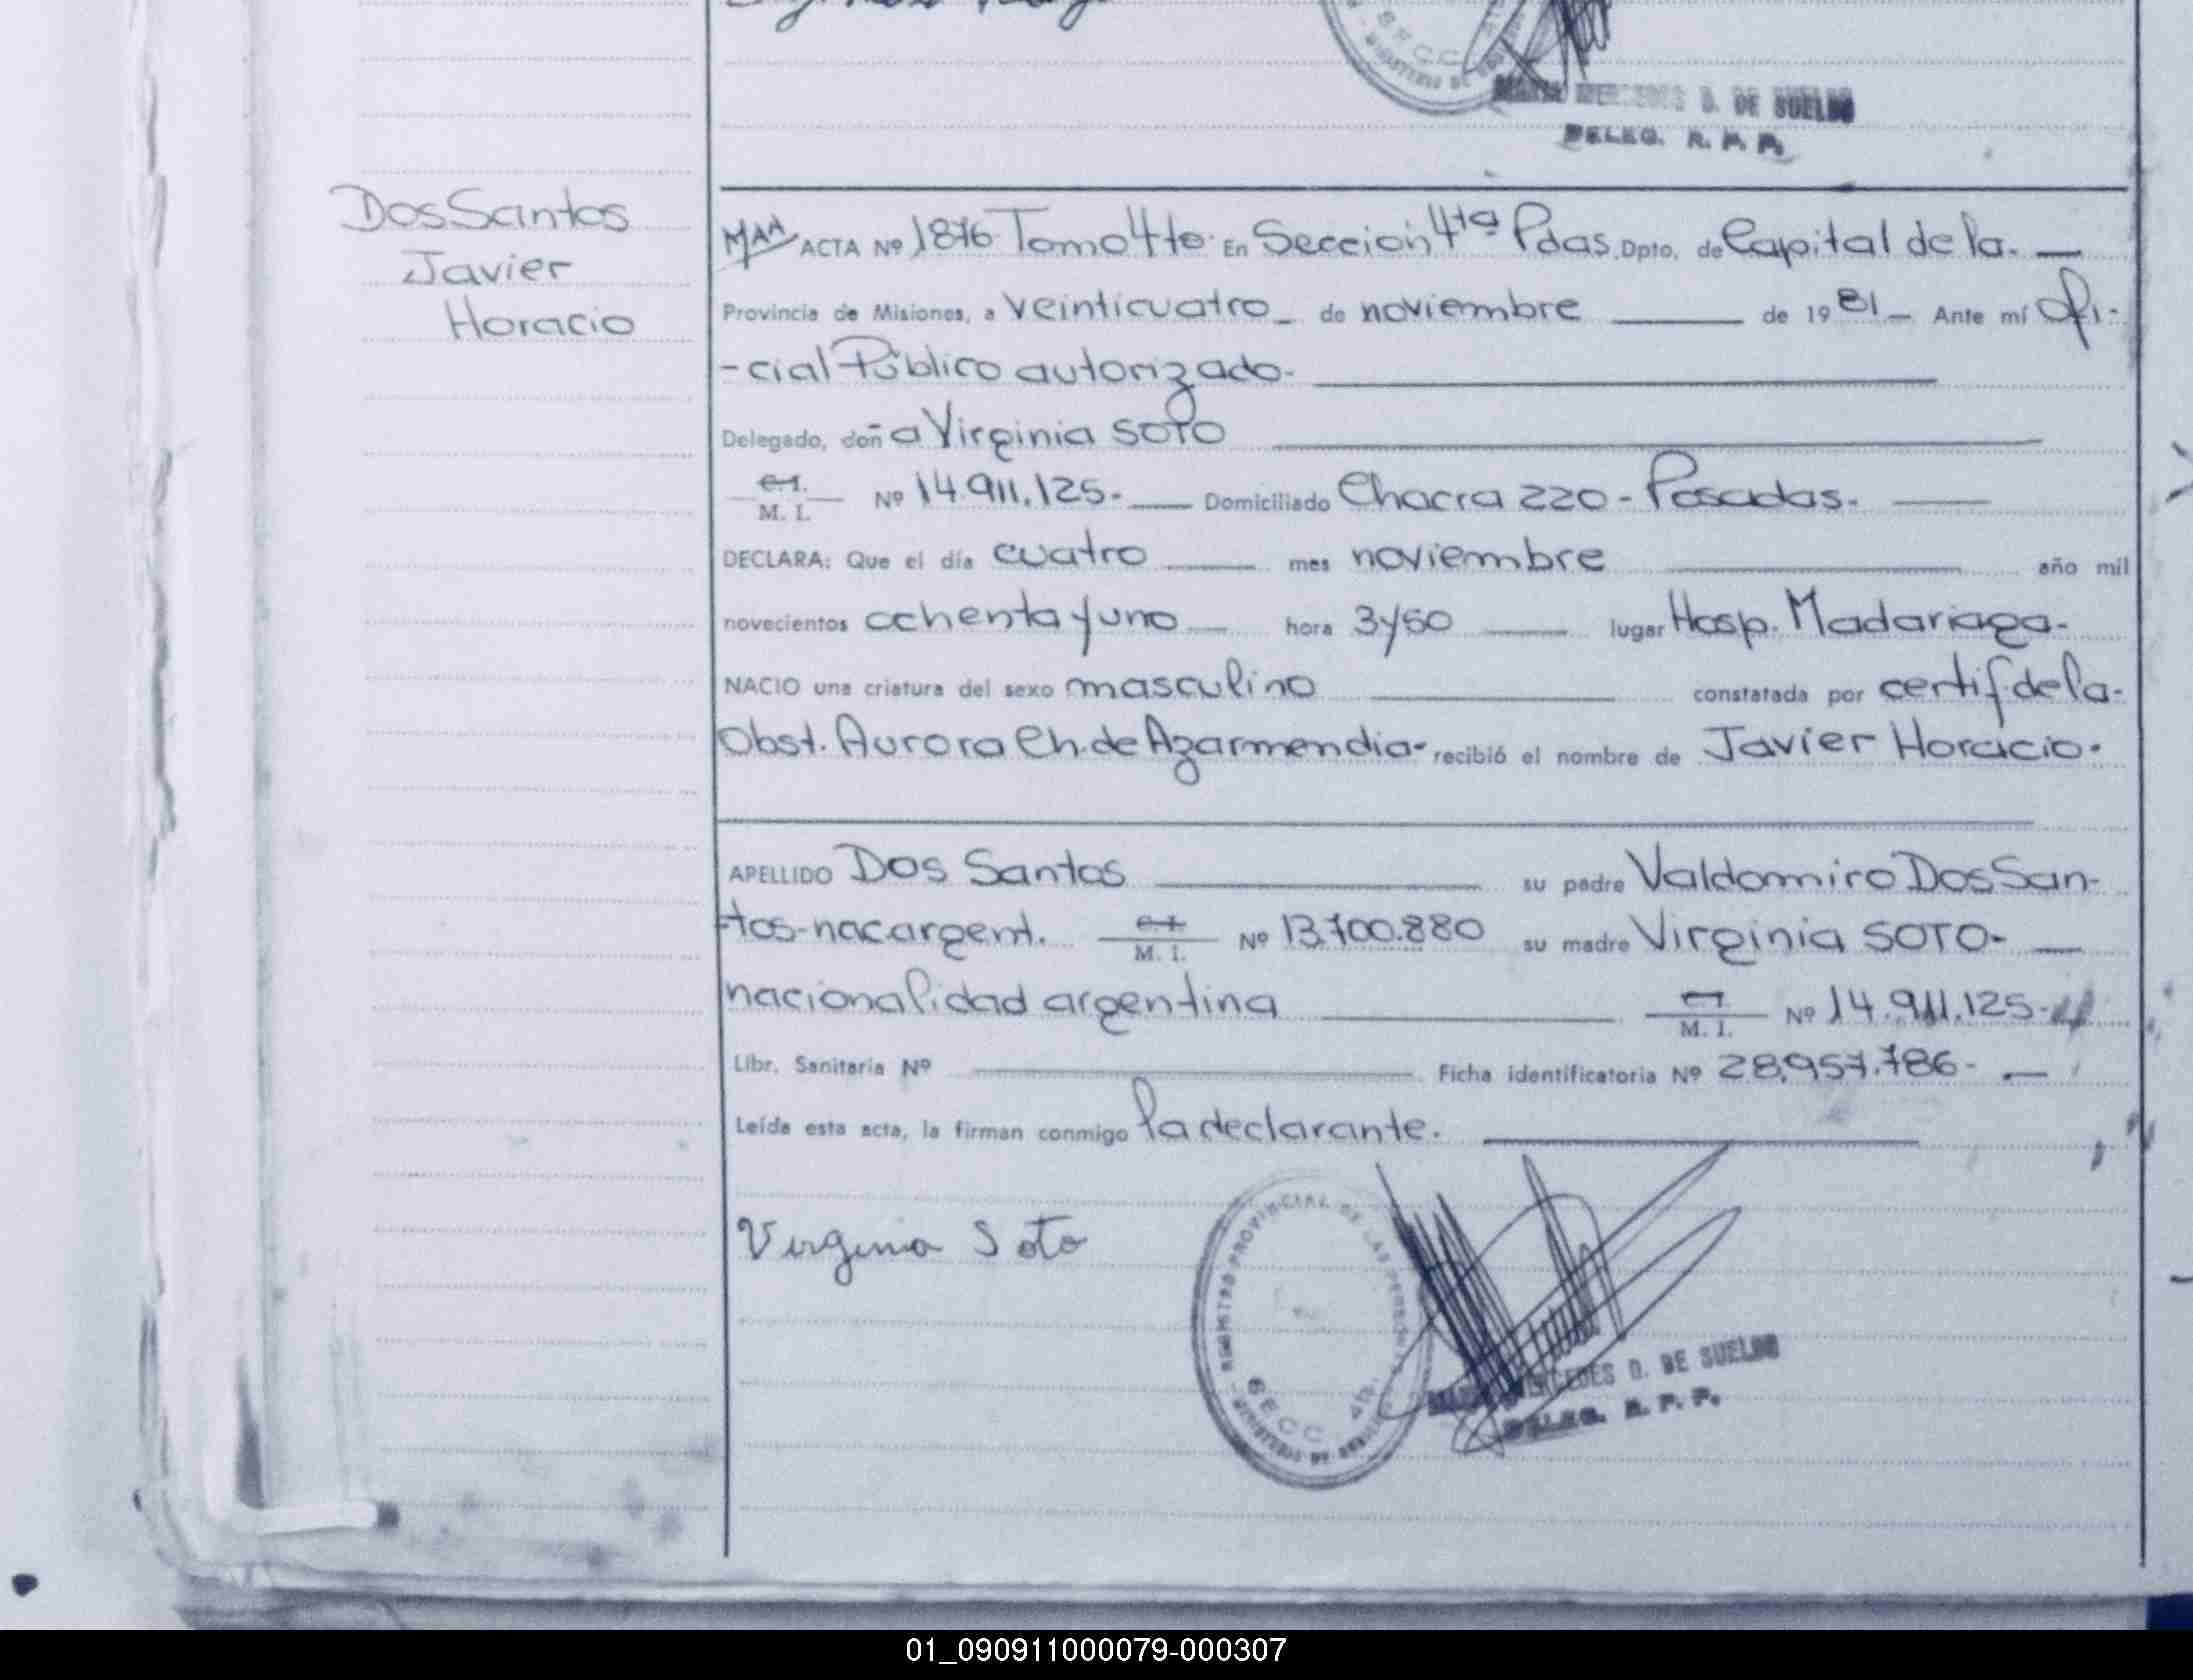 D. DE SUELDO
DELEG. R. P. P.
Dos Santos
Javier
Horacio
ACTA Nº 1876 Tomo 4to. En Sección 4ta Pdas. Dpto. de Capital de la.
Provincia de Misiones, a veinticuatro de noviembre de 1981 Ante mí Ofi-
-cial Público autorizado.
Delegado, doña Virginia SOTO
C.I.
M. I. Nº 14.911.125. Domiciliado Chacra 220 - Posadas.
DECLARA: Que el día cuatro mes noviembre año mil
novecientos ochenta y uno hora 3y50 lugar Hosp. Madariaga.
NACIO una criatura del sexo masculino constatada por certif. de la.
Obst. Aurora Ch. de Azarmendia. recibió el nombre de Javier Horacio.
APELLIDO Dos Santos su padre Valdomiro Dos San-
tos-nac argent. C.I. M. I. Nº 13.700.880 su madre Virginia SOTO.
nacionalidad argentina M. I. Nº 14.911.125-
Libr. Sanitaria Nº Ficha identificatoria Nº 28.957.786-
Leída esta acta, la firman conmigo la declarante.
Virginia Soto
REGISTRO PROVINCIAL DE LAS PERSONAS
SECC 4ta.
MERCEDES D. DE SUELDO
DELEG. R. P. P.
01_090911000079-000307